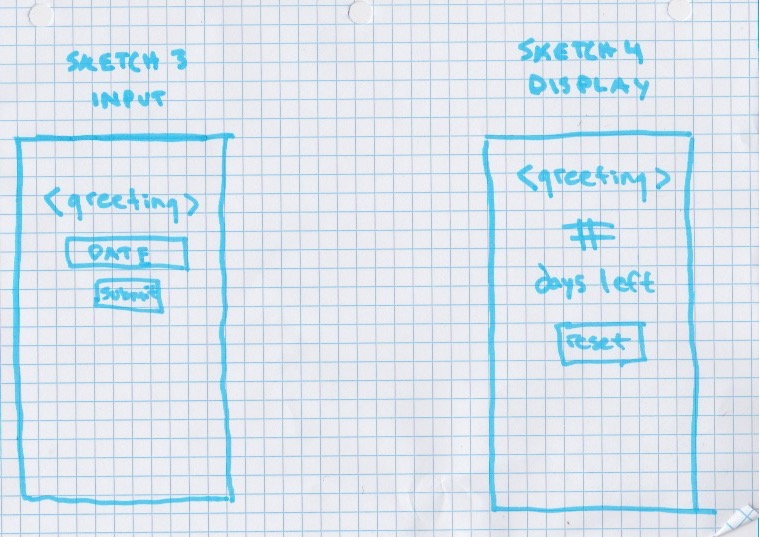 SKETCH 3
INPUT
<greeting>
DATE
submit
SKETCH 4
DISPLAY
<greeting>
#
days left
reset